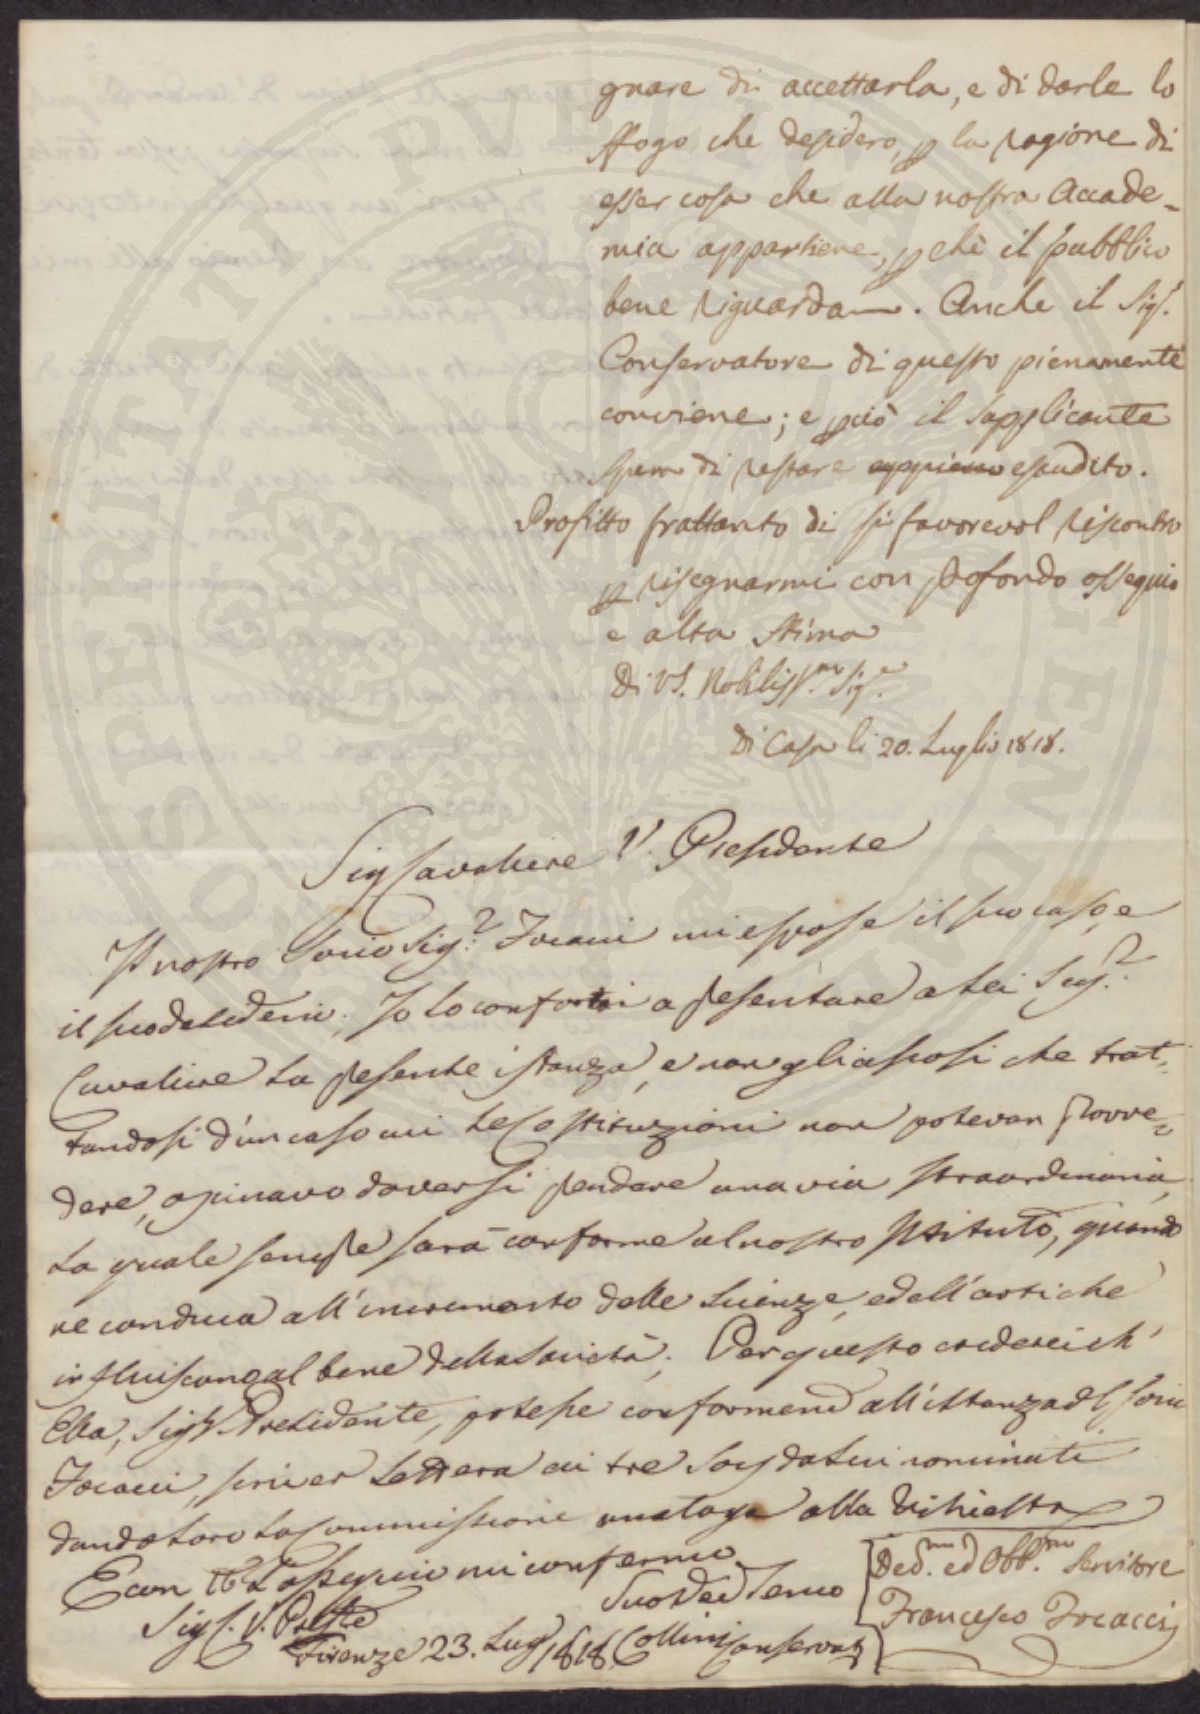 gnare di accettarla, e di darle lo
sfogo che desidero, p la ragione di
esser cosa che alla nostra Accade=
mia appartiene, p chè il pubblico
bene riguarda. Anche il Sig.r
Conservatore di questo pienamente
conviene; e pciò il Supplicante
spera di restare appieno esaudito.
Profitto frattanto di sì favorevol riscontro
p risegnarmi con profondo ossequio
e alta stima
Di VS. Nobiliss.ma Sig.e
Di Casa li 20. Luglio 1818.
Sig Cavaliere V. Presidente
Il nostro Socio Sig.r Focacci mi espose il suo caso, e
il suo desiderio. Io lo confortai a presentare a Lei Sig.r
Cavaliere la presente istanza, e non gli ascosi che trat=
tandosi d'un caso cui le Costituzioni non potevan provve=
dere, opinavo doversi prendere una via straordinaria,
la quale sempre sarà conforme al nostro Istituto, quando
ne conduca all'incremento delle Scienze, e dell'arti che
influiscono al bene della Società. Per questo crederei ch'
Ella, Sig V. Presidente, potesse conformemente all'istanza del Socio
Focacci, scriver Lettera ai tre Sogg da lui nominati
dando loro la Commissione analoga alla richiesta
E con tt L'ossequio mi confermo
Sig C. V. Preste
Suo Dev Servo
Firenze 23. Lug 1818. Collini Conservat
Ded.mo ed Obb.mo Servitore
Francesco Focacci
OSPERITATI PVBLICAE AVGENDAE